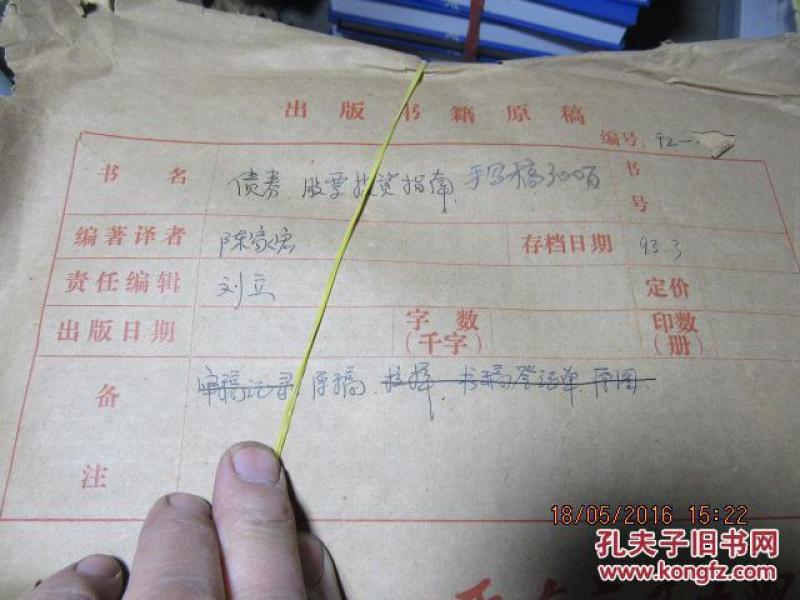 出版书籍原稿
编号: 92-
书名 债券 股票投资指南 手写稿300页 书号
编著译者 陈家宏 存档日期 93.3
责任编辑 刘立 定价
出版日期 字数(千字) 印数(册)
备注 审稿记录、原稿、校样、书稿登记单、原图
18/05/2016 15:22
孔夫子旧书网
www.kongfz.com